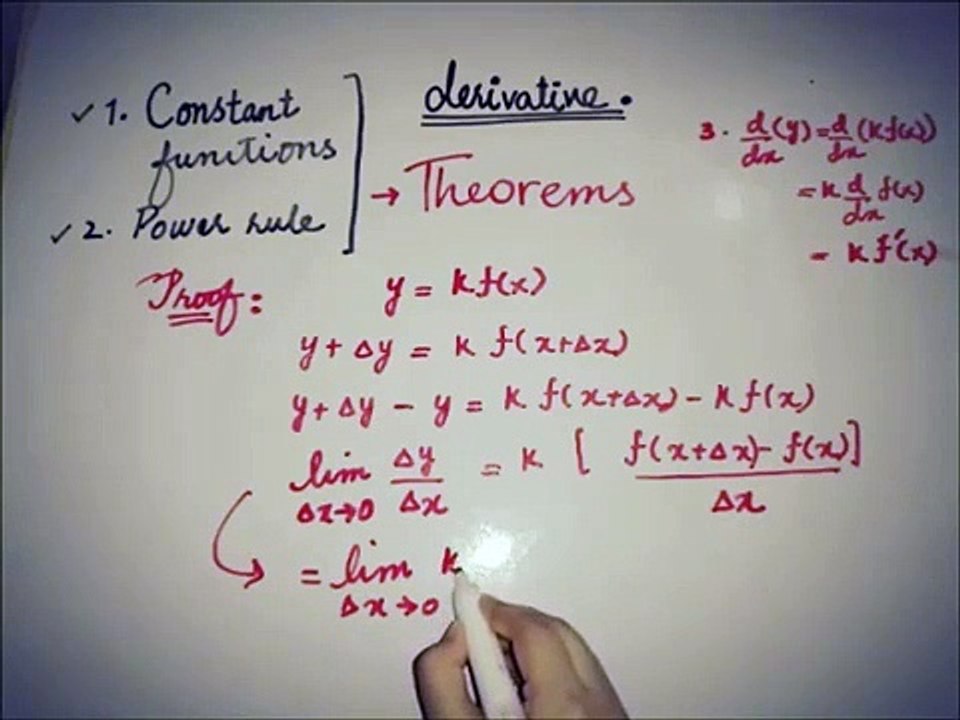 derivative.
✓ 1. Constant
functions
✓ 2. Power rule
→ Theorems
3. d/dx (y) = d/dx (k f(x))
= k d/dx f(x)
= k f'(x)
Proof:
y = k f(x)
y + Δy = k f(x+Δx)
y + Δy - y = k f(x+Δx) - k f(x)
lim Δx→0 Δy/Δx = k [ f(x+Δx) - f(x) ] / Δx
= lim Δx→0 k